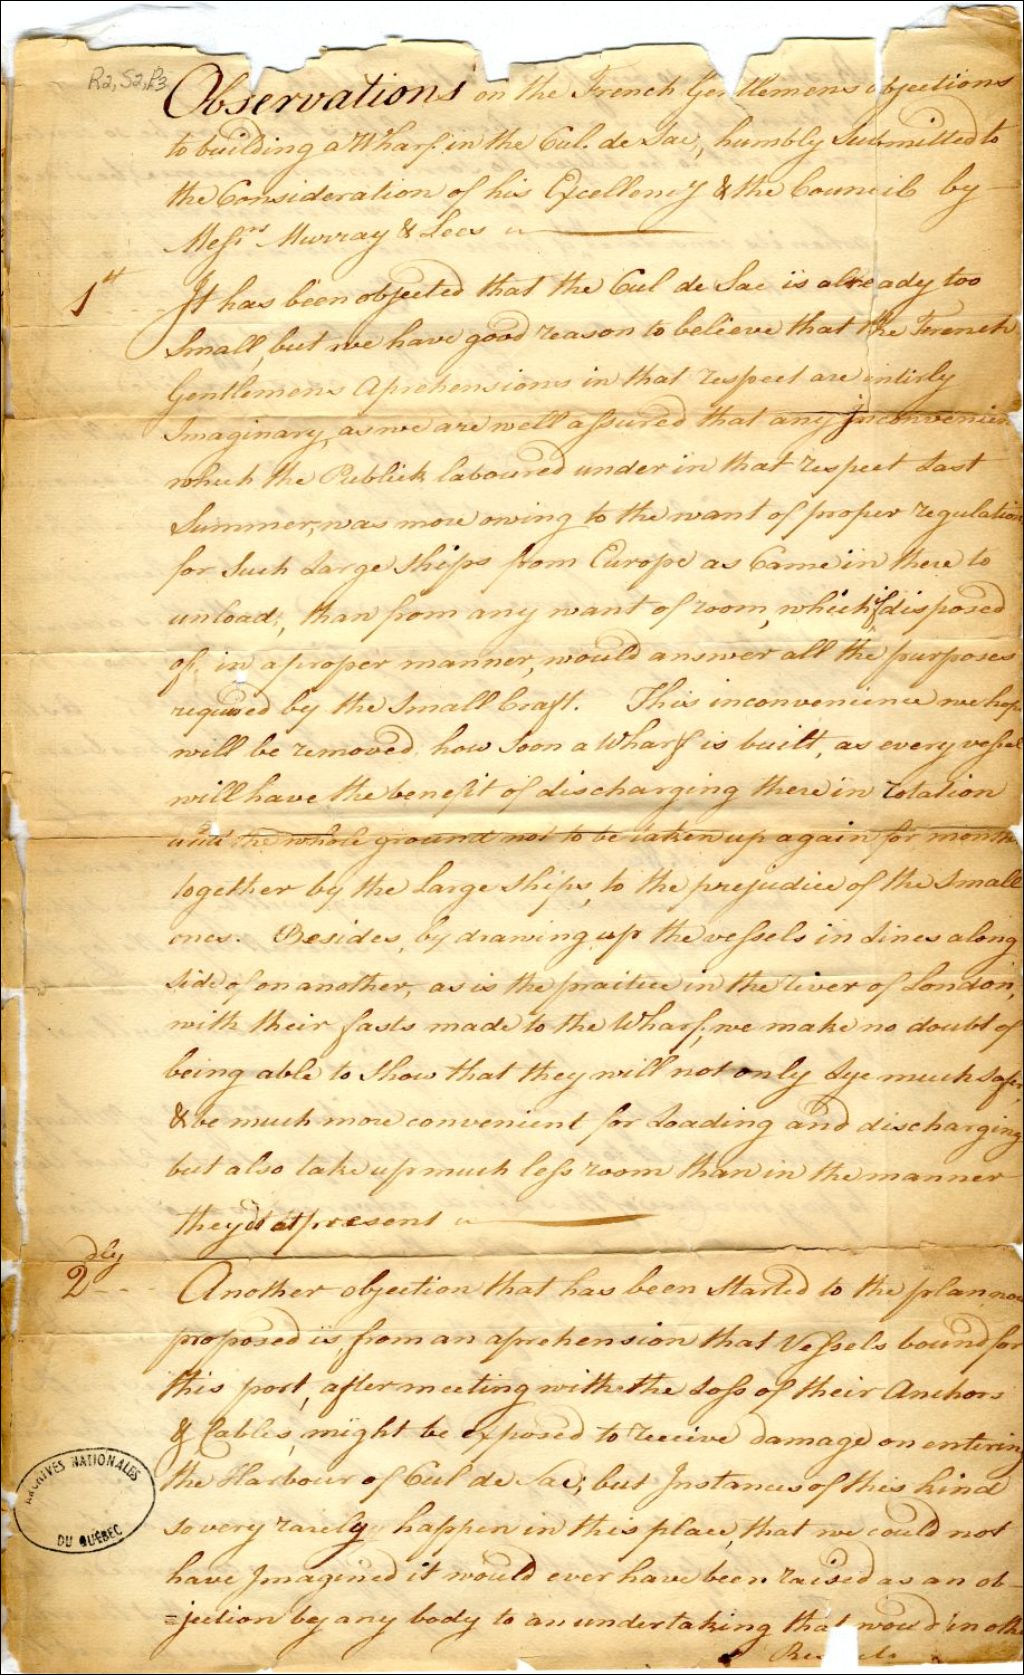 R2, S2, P3
Observations on the French Gentlemens objections
to building a Wharf in the Cul. de Sac, humbly Submitted to
the Consideration of his Excellency & the Council by
Messrs Murray & Lees
1st It has been objected that the Cul de Sac is already too
Small, but we have good reason to believe that the French
Gentlemens Aprehensions in that respect are intirly
Imaginary, as we are well assured that any Inconvenien
which the Publick laboured under in that respect Last
Summer, was more owing to the want of proper regulation
for Such Large Ships from Europe as Came in there to
unload, than from any want of room, which if disposed
of, in a proper manner, would answer all the purposes
required by the Small Craft. This inconvenience we hope
will be removed, how Soon a Wharf is built, as every vessel
will have the benefit of discharging there in rotation
and the whole ground not to be taken up again for months
together by the Large Ships, to the prejudice of the Small
ones. Besides, by drawing up the vessels in Lines along
Side of on another, as is the practice in the river of London,
with their fasts made to the Wharf, we make no doubt of
being able to Show that they will not only Lye much Safer
& be much more convenient for Loading and discharging
but also take up much less room than in the manner
they at present
2dly Another objection that has been Started to the plan now
proposed is, from an aprehension that Vessels bound for
this port, after meeting with the Loss of their Anchors
& Cables, might be exposed to receive damage on entering
the Harbour of Cul de Sac; but Instances of this kind
so very rarely happen in this place, that we could not
have Imagined it would ever have been raised as an ob-
=jection by any body to an undertaking that would in oth
ARCHIVES NATIONALES
DU QUÉBEC